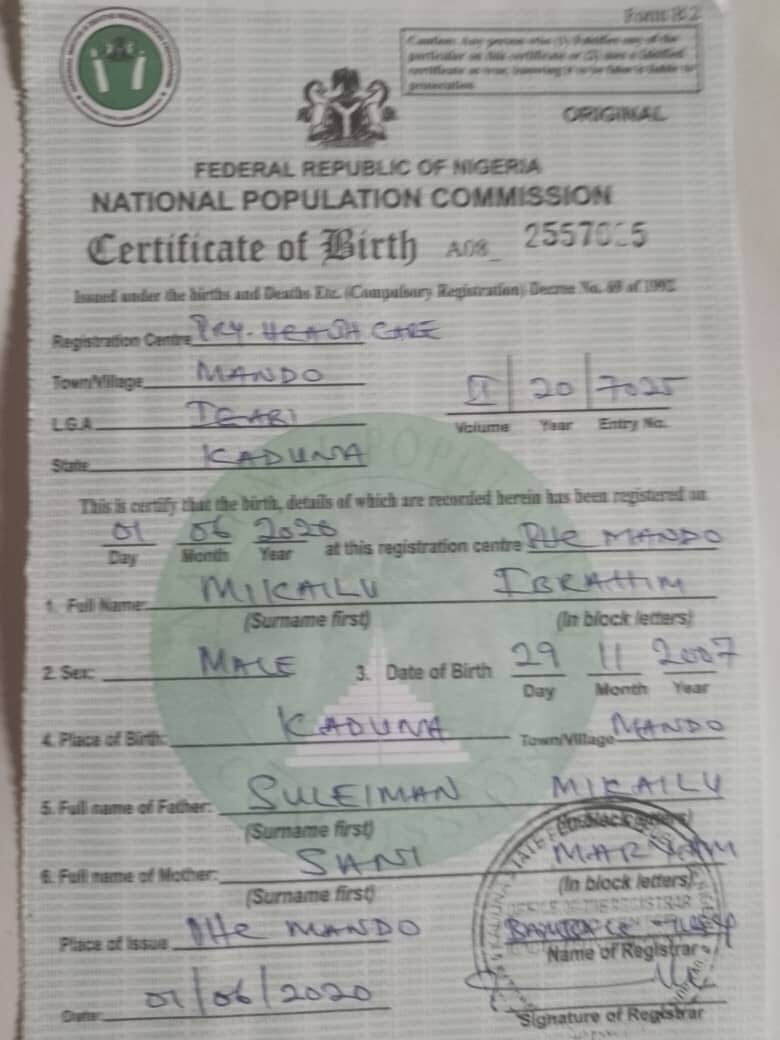 Form B 2
Caution: Any person who (1) falsifies any of the
particular on this certificate or (2) uses a falsified
certificate as true, knowing it to be false is liable to
prosecution
ORIGINAL
FEDERAL REPUBLIC OF NIGERIA
NATIONAL POPULATION COMMISSION
Certificate of Birth A08_ 2557
Issued under the births and Deaths Etc. (Compulsory Registration) Decree No. 69 of 1992
Registration Centre PRY-HEATH CARE
Town/Village MANDO
II 20 7025
L.G.A IGABI
Volume Year Entry No.
State KADUNA
This is certify that the birth, details of which are recorded herein has been registered on
01 06 2020 at this registration centre PHC MANDO
Day Month Year
1. Full Name: MIKAILU IBRAHIM
(Surname first) (In block letters)
2. Sex: MALE 3. Date of Birth 29 11 2007
Day Month Year
4. Place of Birth: KADUNA Town/Village MANDO
5. Full name of Father: SULEIMAN MIKAILU
(Surname first) (In block letters)
6. Full name of Mother: SANI MARYAM
(Surname first) (In block letters)
Place of Issue PHC MANDO
Name of Registrar
Date: 01/06/2020
Signature of Registrar